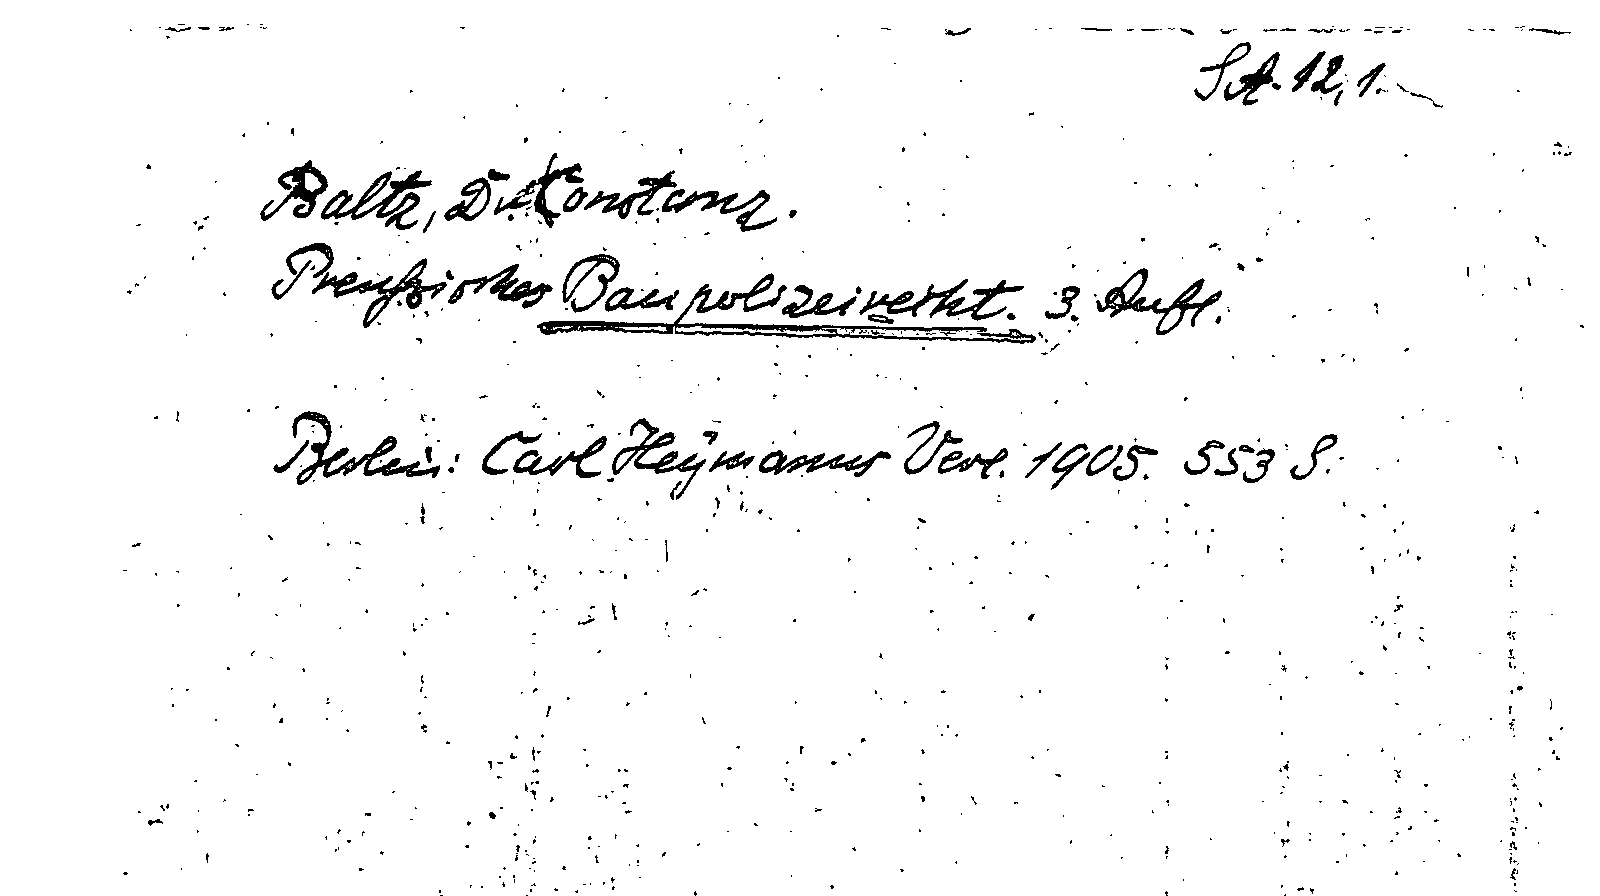 SA. 12,1.
Baltz, Dr. Constanz.
Preußisches Baupolizeirecht. 3. Aufl.
Berlin: Carl Heymanns Verl. 1905. 553 S.